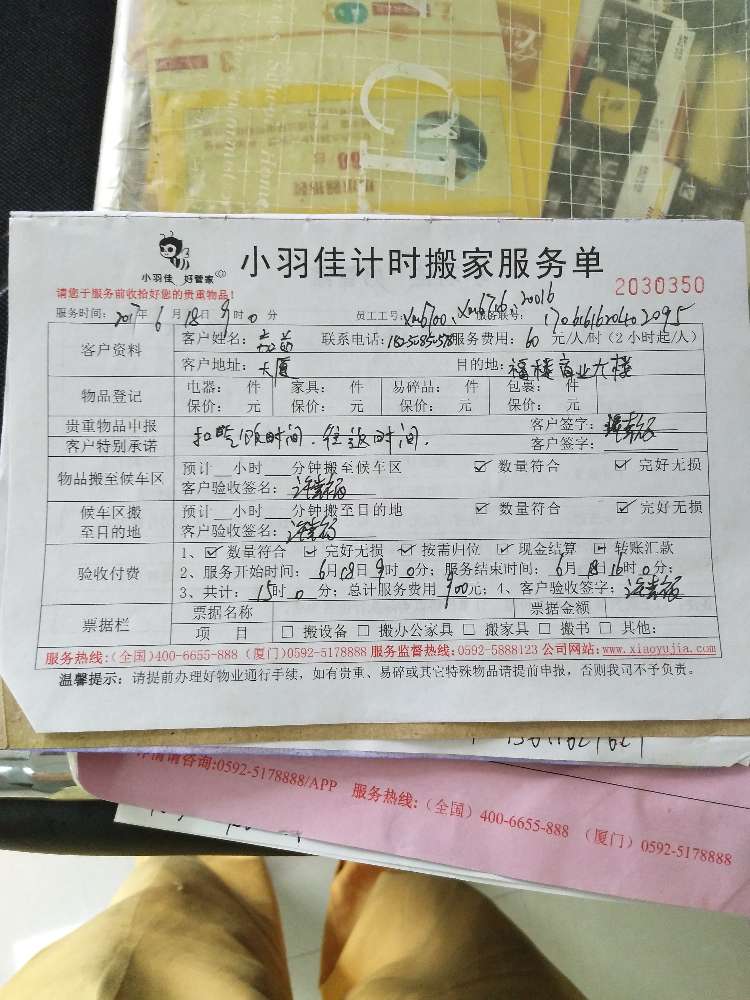 小羽佳 好管家
小羽佳计时搬家服务单
2030350
请您于服务前收拾好您的贵重物品!
服务时间: 2017年 6月 18日 9时 0分 员工工号: 服务联号:
客户资料
客户姓名: 联系电话: 服务费用: 60 元/人/时(2小时起/人)
客户地址: 大厦 目的地: 福楼商业大楼
物品登记
电器: 件 家具: 件 易碎品: 件 包裹: 件
保价: 元 保价: 元 保价: 元 保价: 元
贵重物品申报 客户签字:
客户特别承诺 时间. 往返时间. 客户签字:
物品搬至候车区
预计 小时 分钟搬至候车区 数量符合 完好无损
客户验收签名:
候车区搬至目的地
预计 小时 分钟搬至目的地 数量符合 完好无损
客户验收签名:
验收付费
1、 数量符合 完好无损 按需归位 现金结算 转账汇款
2、服务开始时间: 6月18日 9时 0分; 服务结束时间: 6月 18日16时 0分;
3、共计: 15时 0 分; 总计服务费用 900元; 4、客户验收签字:
票据栏
票据名称 票据金额
项 目 □ 搬设备 □ 搬办公家具 □ 搬家具 □ 搬书 □ 其他:
服务热线:(全国)400-6655-888 (厦门)0592-5178888 服务监督热线:0592-5888123 公司网站:www.xiaoyujia.com
温馨提示: 请提前办理好物业通行手续, 如有贵重、易碎或其它特殊物品请提前申报, 否则我司不予负责。
咨询:0592-5178888/APP 服务热线:(全国) 400-6655-888 (厦门) 0592-5178888